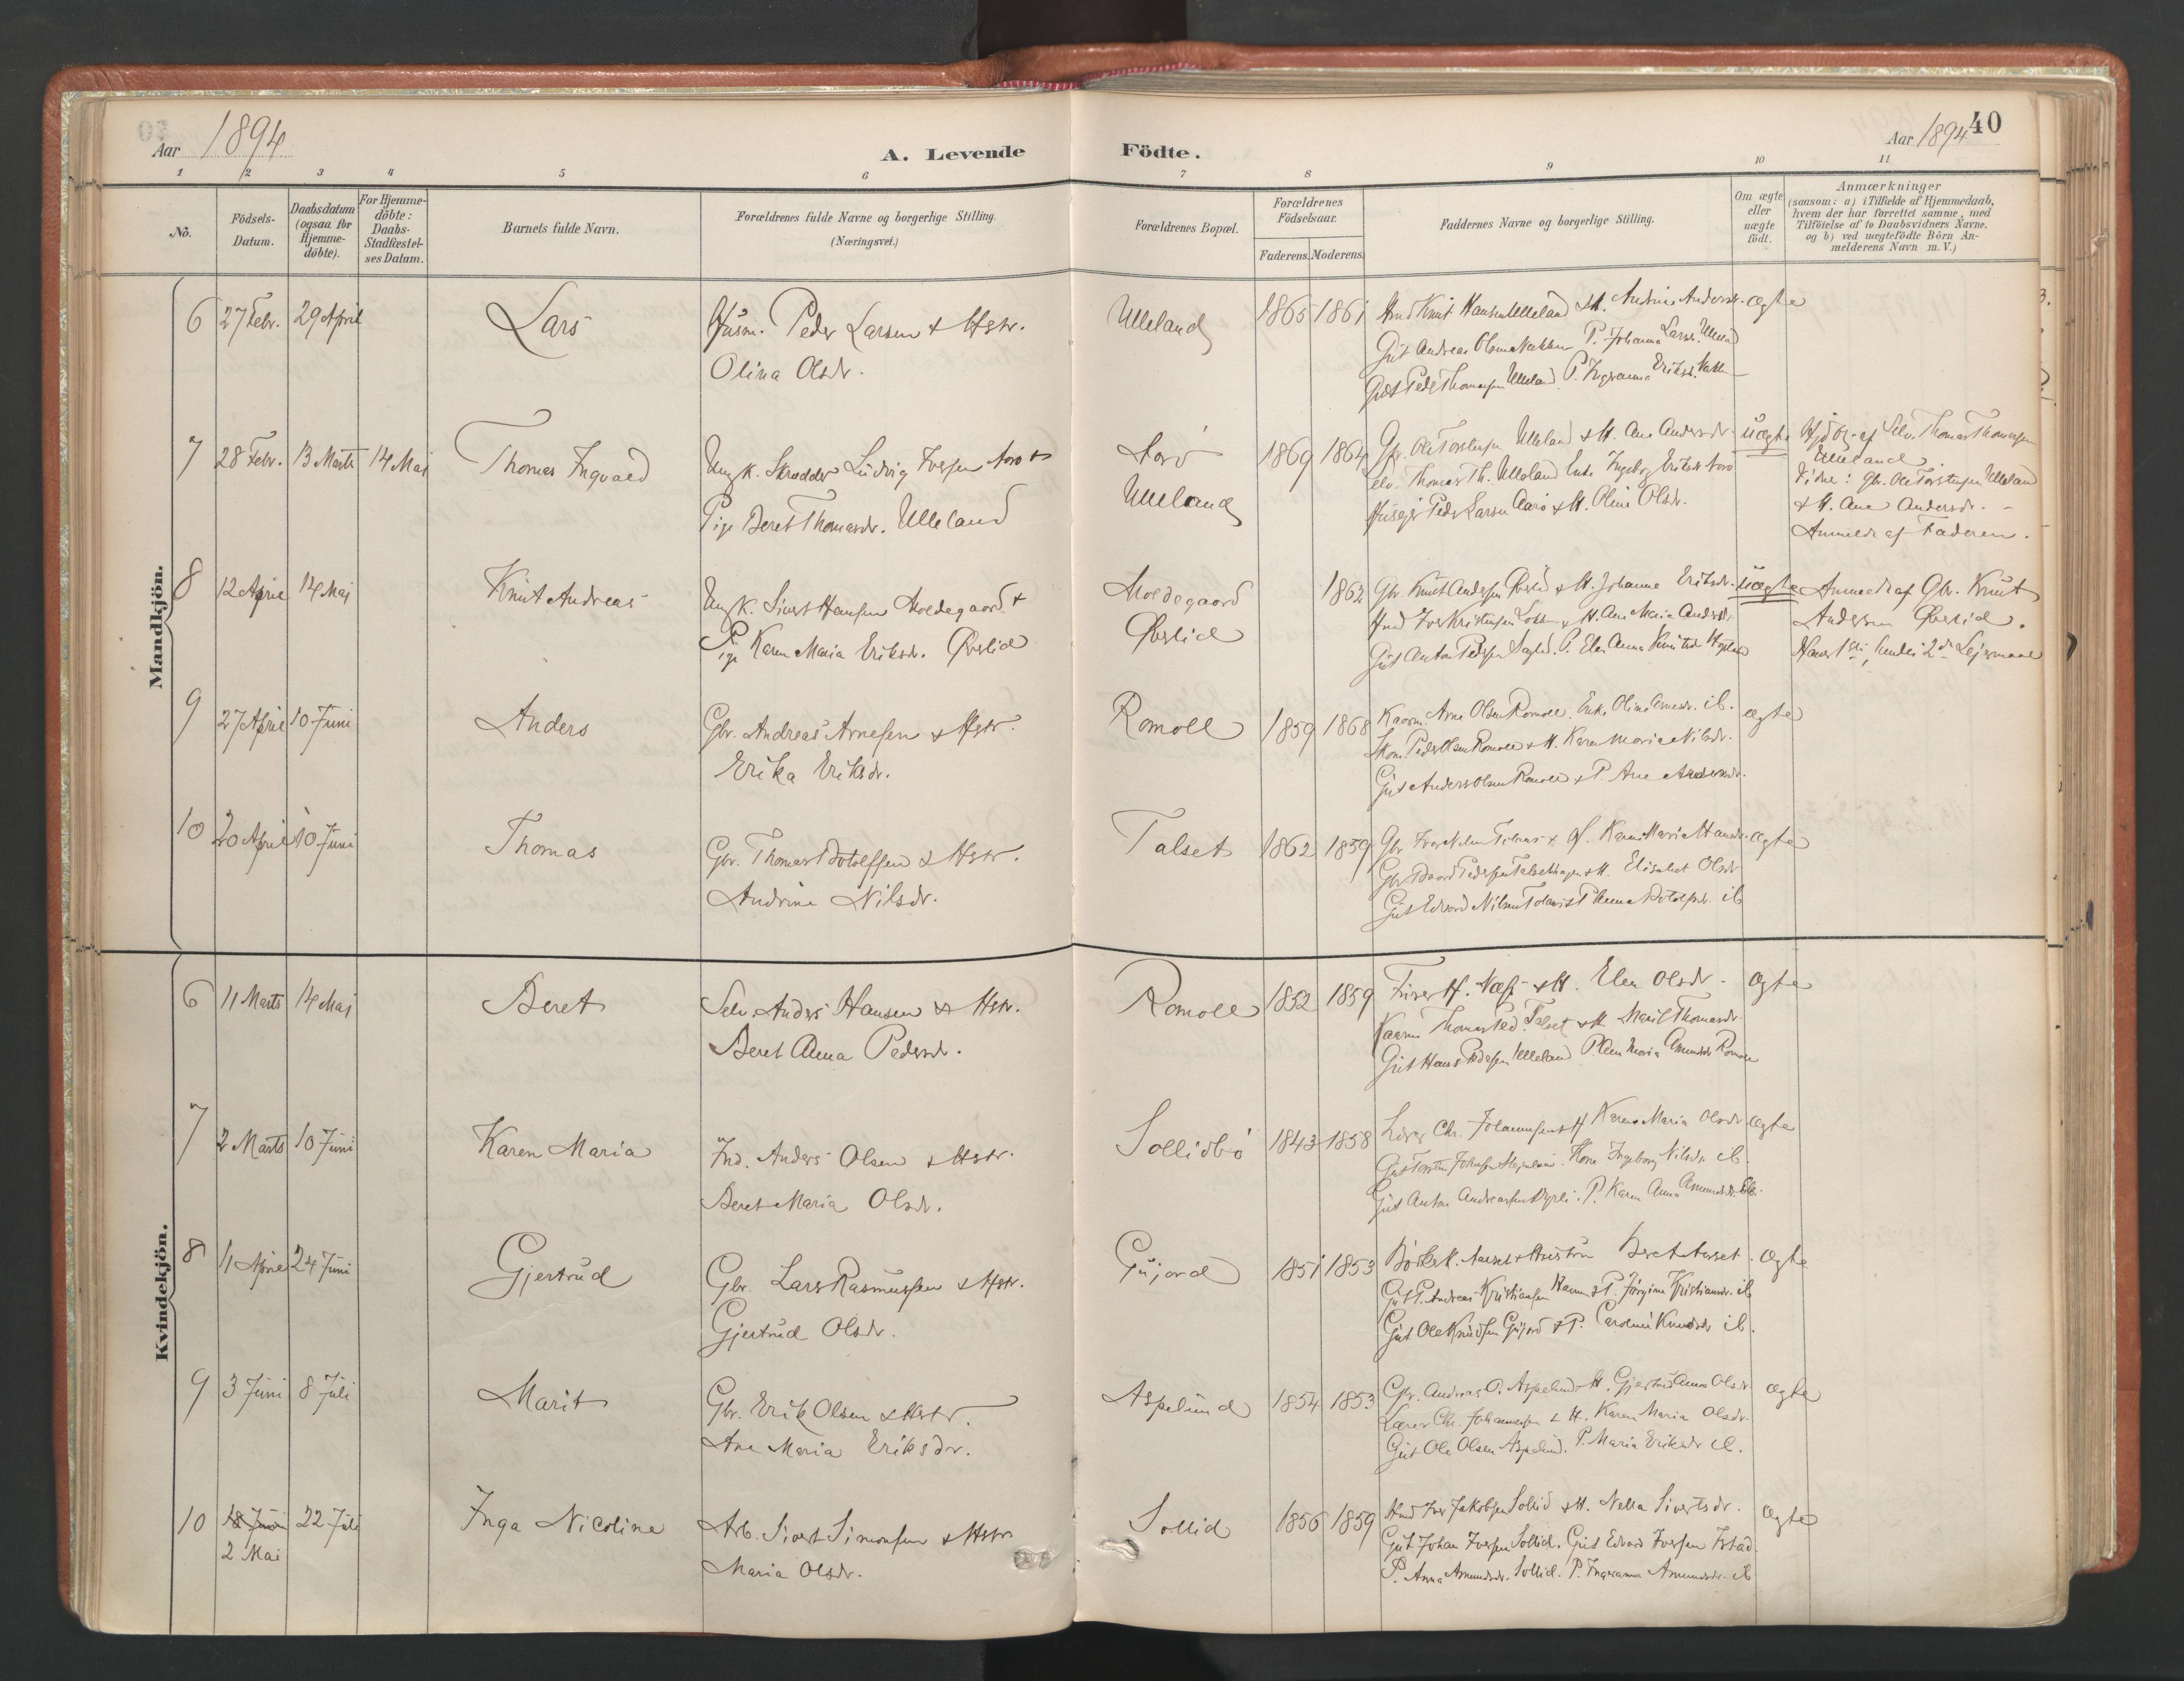 Aar 1894
A. Levende Födte.
Aar 1894 40
1 2 3 4 5 6 7 8 9 10 11
No.
Födsels-Datum.
Daabsdatum (ogsaa for Hjemme-döbte).
For Hjemme-döbte: Daabs-Stadfæstel-ses Datum.
Barnets fulde Navn.
Forældrenes fulde Navne og borgerlige Stilling.
(Næringsvei.)
Forældrenes Bopæl.
Forældrenes Födselsaar.
Faderens. Moderens.
Faddernes Navne og borgerlige Stilling.
Om ægte eller uægte födt.
Anmærkninger
(saasom: a) i Tilfælde af Hjemmedaab,
hvem der har forrettet samme, med
Tilföielse af to Daabsvidners Navne,
og b) ved uægtefödte Börn An-
melderens Navn m. V.)
Mandkjön.
6 27 Febr. 29 April Lars Husm. Peder Larsen & Hstr. Ulleland 1865 1861 Knut Hansen Ulleland & H. Andrine Andersdr. ægte
Olina Olsdr. Gut Andreas Olsen P. Johanna Larsdr. Ulleland
Gut Peder Thomassen Ulleland. P. Eriksdr.
7 28 Febr. 13 Marts 14 Mai Thomas Ingvald Ungk. Skrædder Ludvig Iversen Arö & Arö 1869 1864 Gbr. Ole Torstensen Ulleland & H. Ane Andersdr. uægte Hjdbt. af Selv. Thomas Thomassen
Pige Beret Thomasdr. Ulleland Ulleland Selv. Thomas Th. Ulleland Enke Ingeborg Eriksdr. Arö Ulleland
Peder Larsen Aarö & H. Olina Olsdr. Vidne: Gbr. Ole Torstensen Ulleland
& H. Ane Andersdr. -
Anmeldt af Faderen.
8 12 April 14 Mai Knut Andreas Ungk. Sivert Hansen Moldegaard & Moldegaard 1862 Gbr. Knut Andersen Øverlid & H. Johanne Eriksdr. uægte Anmeldt af Gbr. Knut
Pige Karen Maria Eriksdr. Øverlid Øverlid Iver Kristensen & H. Ane Maria Andersdr. Andersen Øverlid.
Gut Anton Pedersen P. Elen Anna Knutsdr. Hans 1ste, hendes 2det Lejermaal
9 27 April 10 Juni Anders Gbr. Andreas Arnesen & Hstr. Romoll 1859 1868 Kaarm. Arne Olsen Romoll. Enke Olina Arnesdr. ib. ægte
Erika Eriksdr. Skom. Peder Olsen Romoll & H. Karen Maria Nilsdr.
Gut Anders Olsen Romoll & P. Ane Andersdr.
10 20 April 10 Juni Thomas Gbr. Thomas Botolfsen & Hstr. Talset 1862 1859 Gbr. Iver Nilsen & H. Karen Maria Hansdr. ægte
Andrine Nilsdr. Gbr. Baard Pedersen & H. Elisabet Olsdr.
Gut Edvard Nilsen P. Anna Botolfsdr. ib
Kvindekjön.
6 11 Marts 14 Mai Beret Selv. Anders Hansen & Hstr. Romoll 1852 1859 H. Næss & H. Elen Olsdr. - ægte
Beret Anna Pedersdr. Kaarm. Thomas Ped. Talset & H. Marit Thomasdr.
Gut Hans Pedersen Ulleland P. Elen Maria Amundsdr. Romoll
7 2 Marts 10 Juni Karen Maria Ind. Anders Olsen & Hstr. Sollidbö 1843 1858 Lærer Chr. Johannessen & H Karen Maria Olsdr. ægte
Beret Maria Olsdr. Gut Torsten Johnsen Kone Ingeborg Nilsdr. ib.
Gut Anton Andreassen P. Karen Anna Amundsdr. ib.
8 11 April 24 Juni Gjertrud Gbr. Lars Rasmussen & Hstr. Gujord 1851 1853 Aarset & Hustru Beret Aarset. ægte
Gjertrud Olsdr. Gut P. Andreas Kristiansen & P. Jörgine Kristiansdr. ib
Gut Ole Knudsen Gujord & P. Caroline Knudsdr. ib.
9 3 Juni 8 Juli Marit Gbr. Erik Olsen & Hstr. Aspelund 1854 1853 Gbr. Andreas O. Aspelund & H. Gjertrud Anna Olsdr. ægte
Ane Maria Eriksdr. Lærer Chr. Johannessen & H. Karen Maria Olsdr.
Gut Ole Olsen Aspelund. P. Maria Eriksdr. ib.
10 18 Juni 22 Juli Inga Nicoline Arb. Sivert Simonsen & Hstr. Sollid 1856 1859 Iver Jakobsen Sollid & H. Nella Sivertsdr. ægte
2 Mai Maria Olsdr. Gut Johan Iversen Sollid. Gut Edvard Iversen Istad.
P. Anna Amundsdr. Sollid. P. Ingeranna Amundsdr. ib